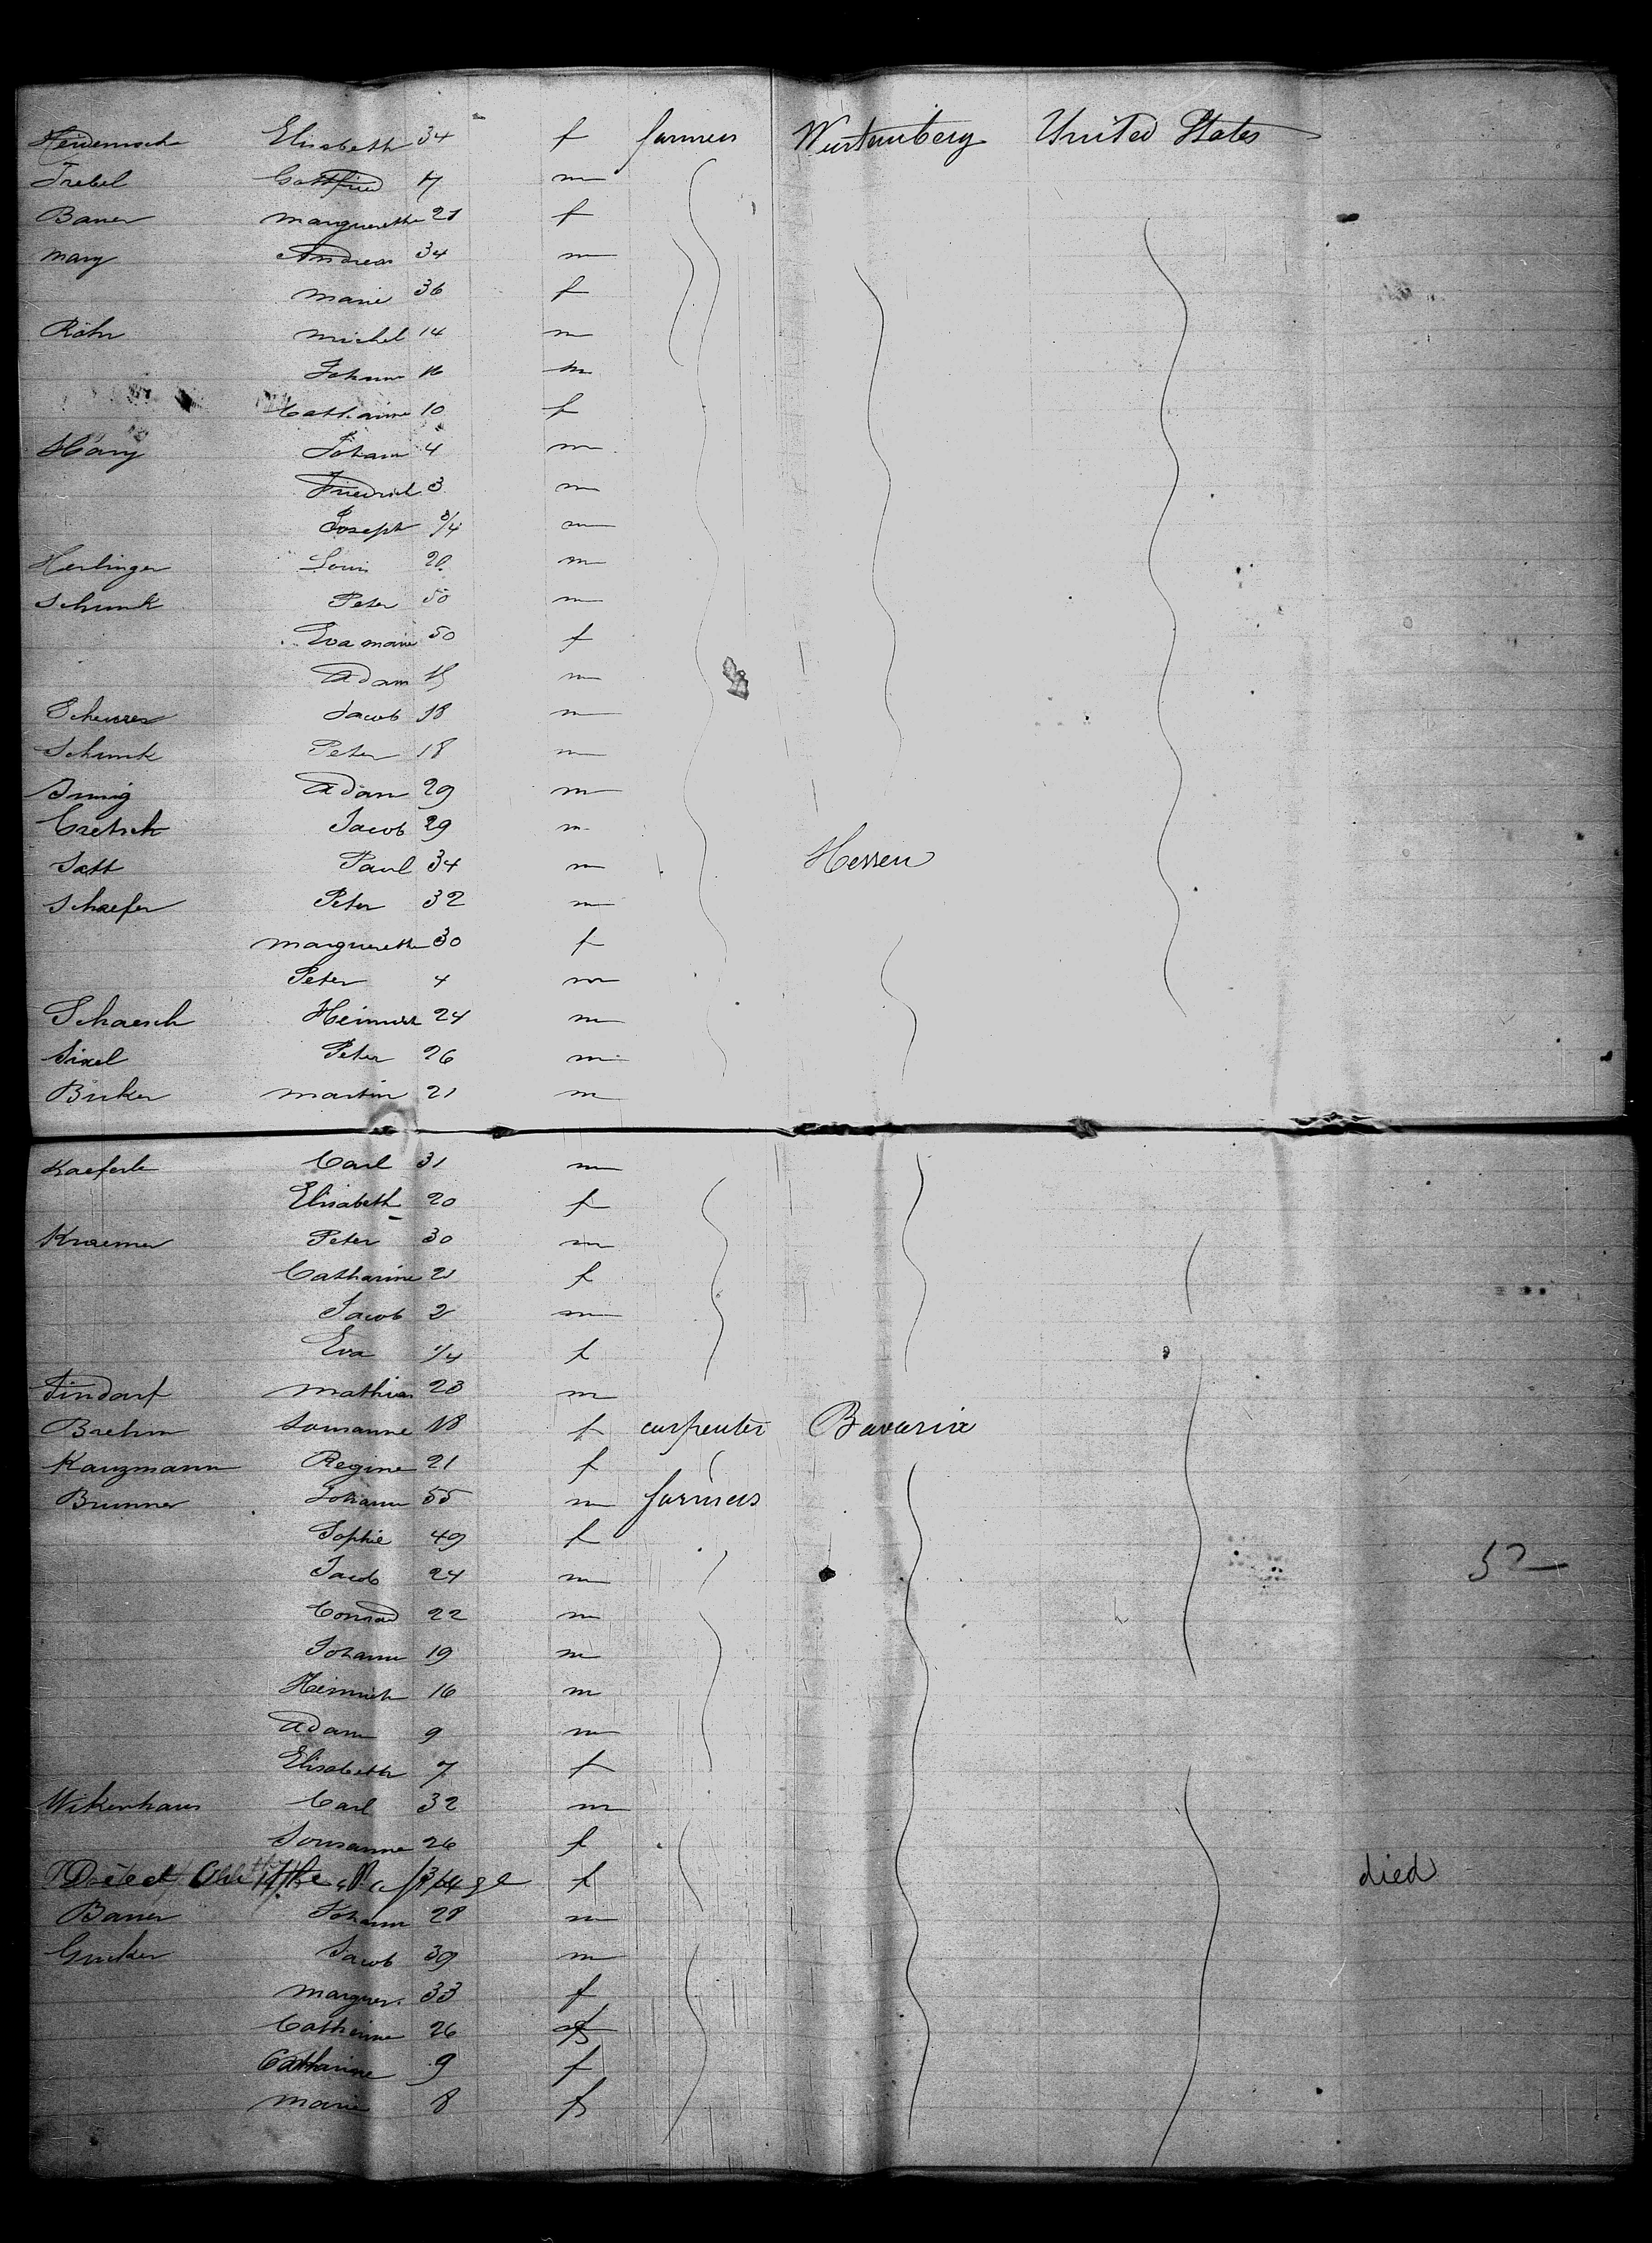 Elisabeth 34 f farmers Wurtemberg United States
Trebel Gottfried 17 m
Bauer Marguerethe 21 f
Mary Andreas 34 m
Marie 36 f
Röhr Michel 14 m
Johann 16 m
Catharine 10 f
Häry Johann 4 m
Friedrich 3 m
Joseph 3/4 m
Herlinger Louis 20 m
Schunk Peter 50 m
Eva Marie 50 f
Adam 15 m
Jacob 18 m
Schunk Peter 18 m
Adam 29 m
Jacob 29 m
Paul 34 m Hessen
Schaefer Peter 32 m
Marguerethe 30 f
Peter 4 m
Schaesch Heinrich 24 m
Sixel Peter 26 m
Birker Martin 21 m
Kaeferle Carl 31 m
Elisabeth 20 f
Kraemer Peter 30 m
Catharine 21 f
Jacob 2 m
Eva 1/4 f
Findorf Mathias 23 m
Brehm Sousanne 18 f carpenter Bavaria
Kanzmann Regine 21 f
Brunner Johann 55 m farmers
Sophie 49 f
Jacob 24 m 52
Conrad 22 m
Johann 19 m
Heinrich 16 m
Adam 9 m
Elisabeth 7 f
Wikenhaus Carl 32 m
Sousanne 26 f
f died
Bauer Johann 28 m
Gucker Jacob 39 m
Marguer. 33 f
Catherine 26 f
Catharine 9 f
Marie 8 f